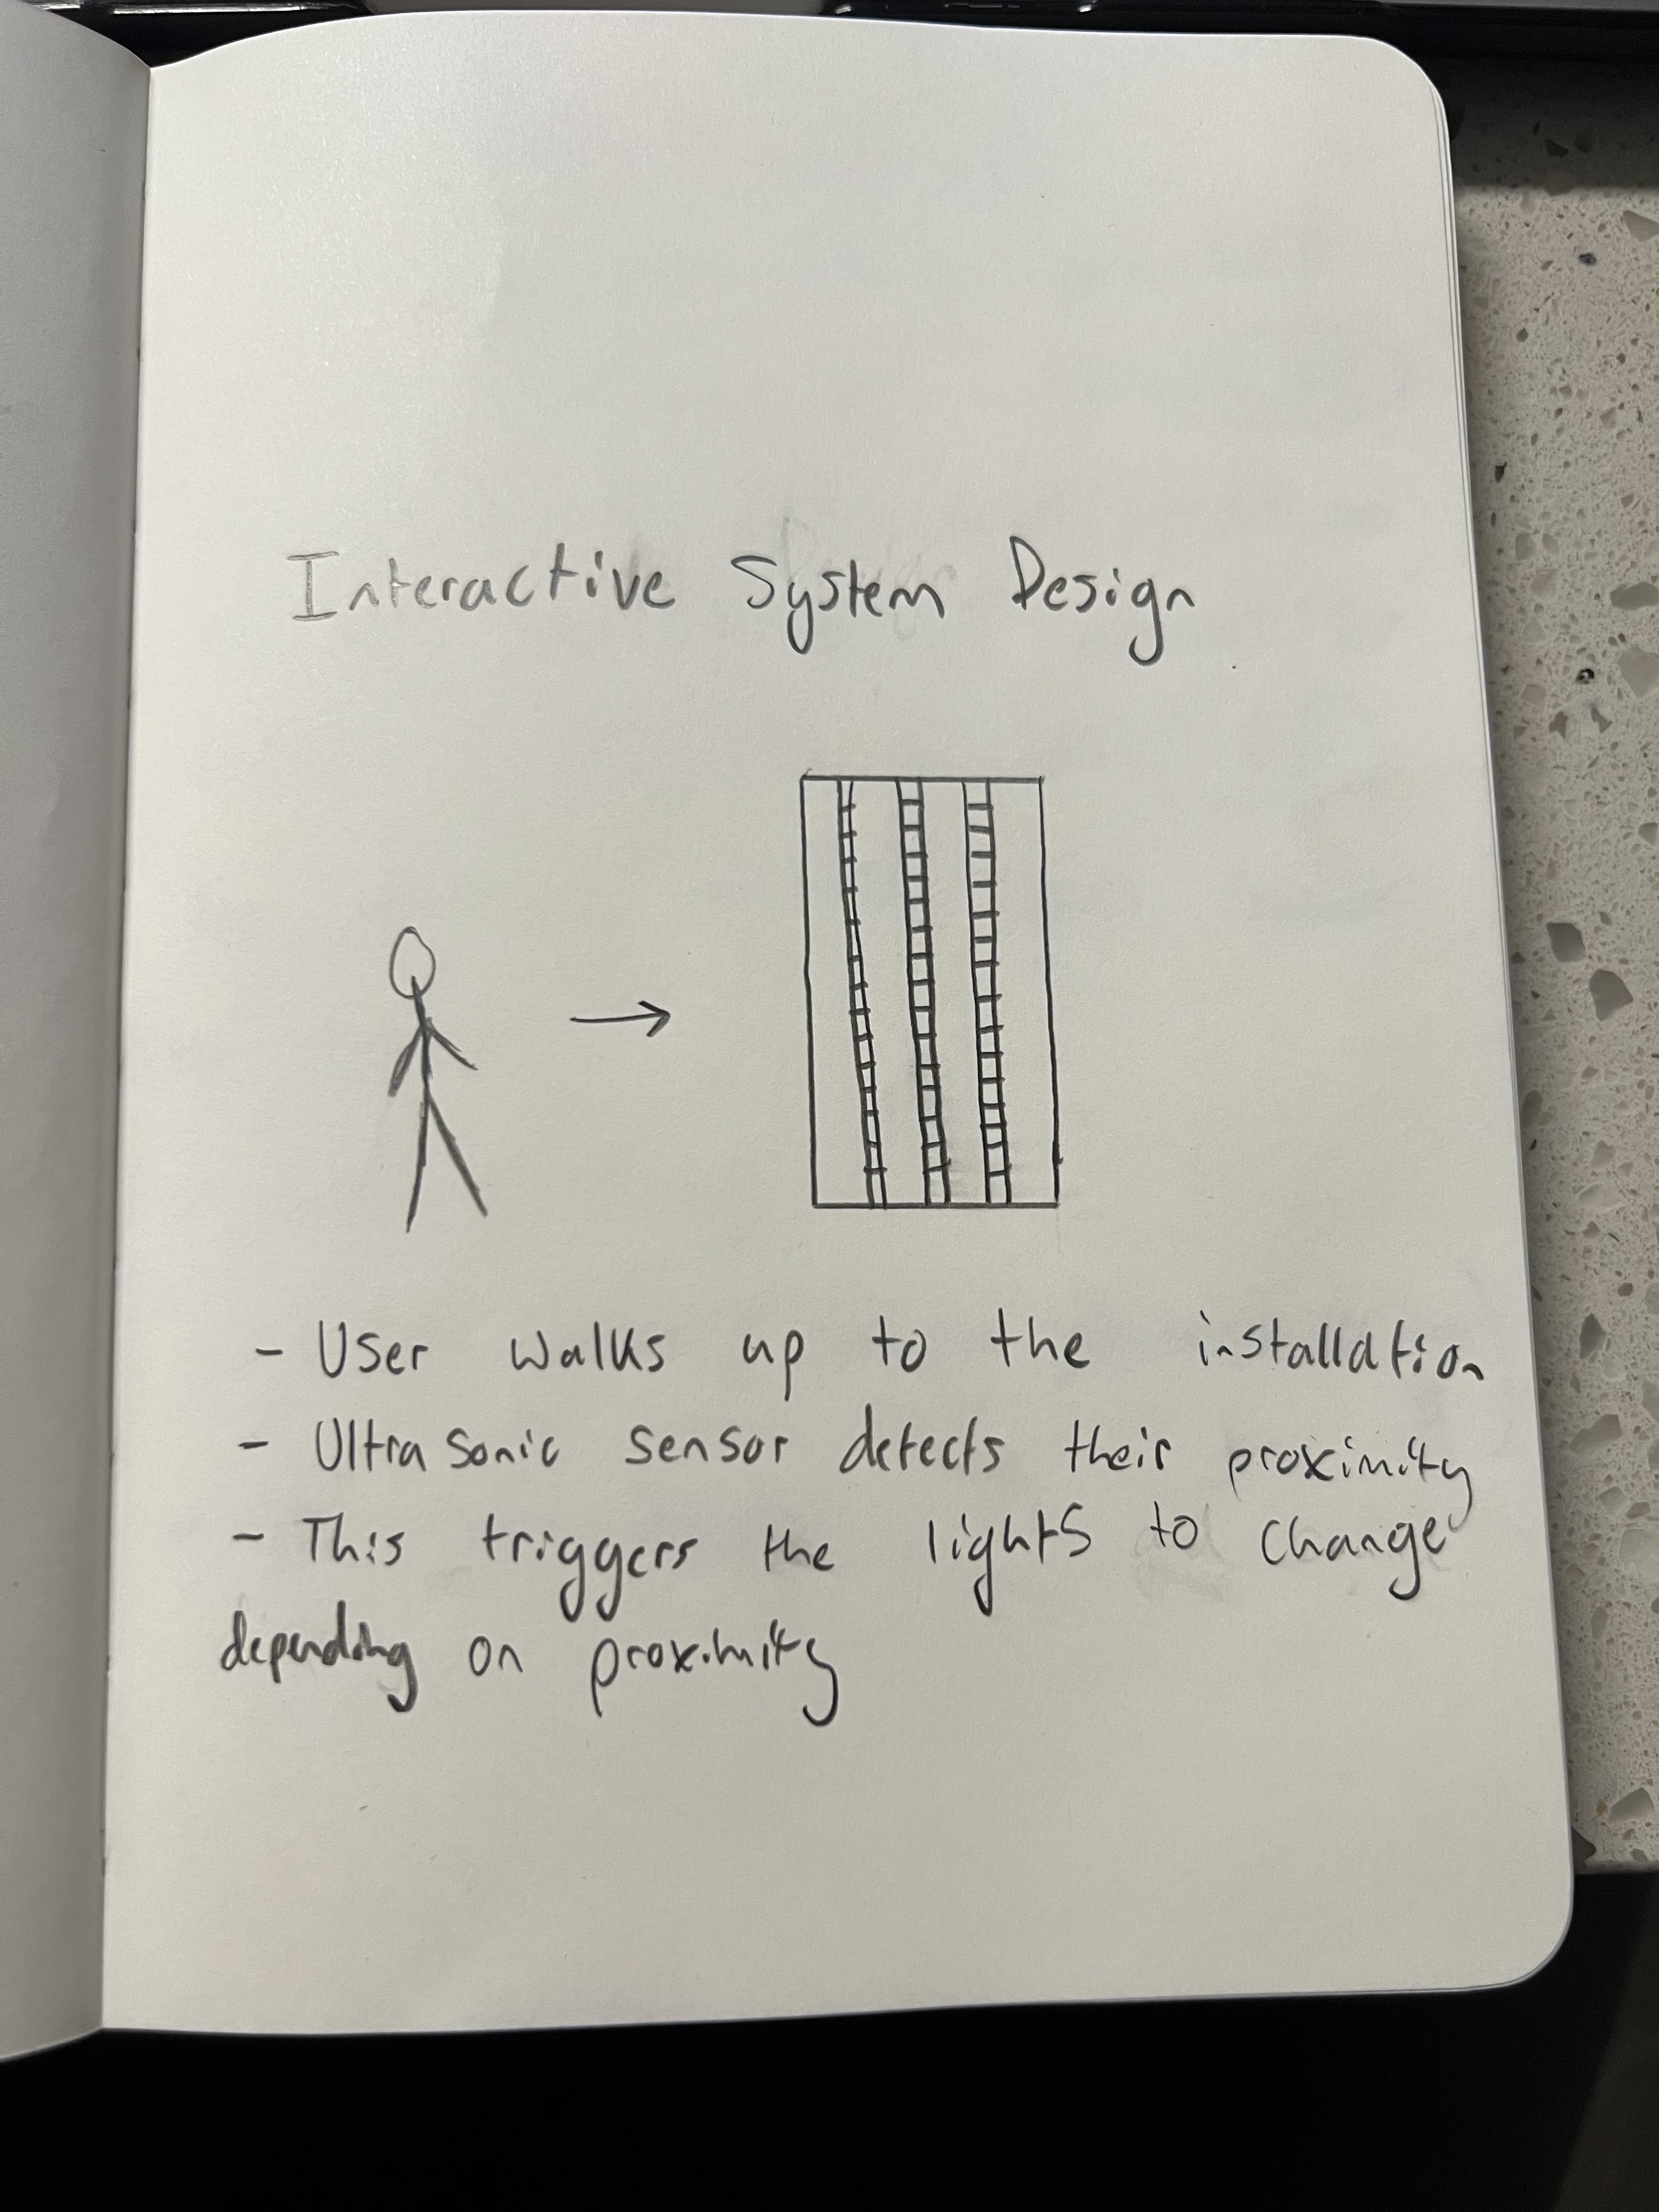 Interactive System Design
- User walks up to the installation
- Ultra sonic sensor detects their proximity
- This triggers the lights to change
depending on proximity